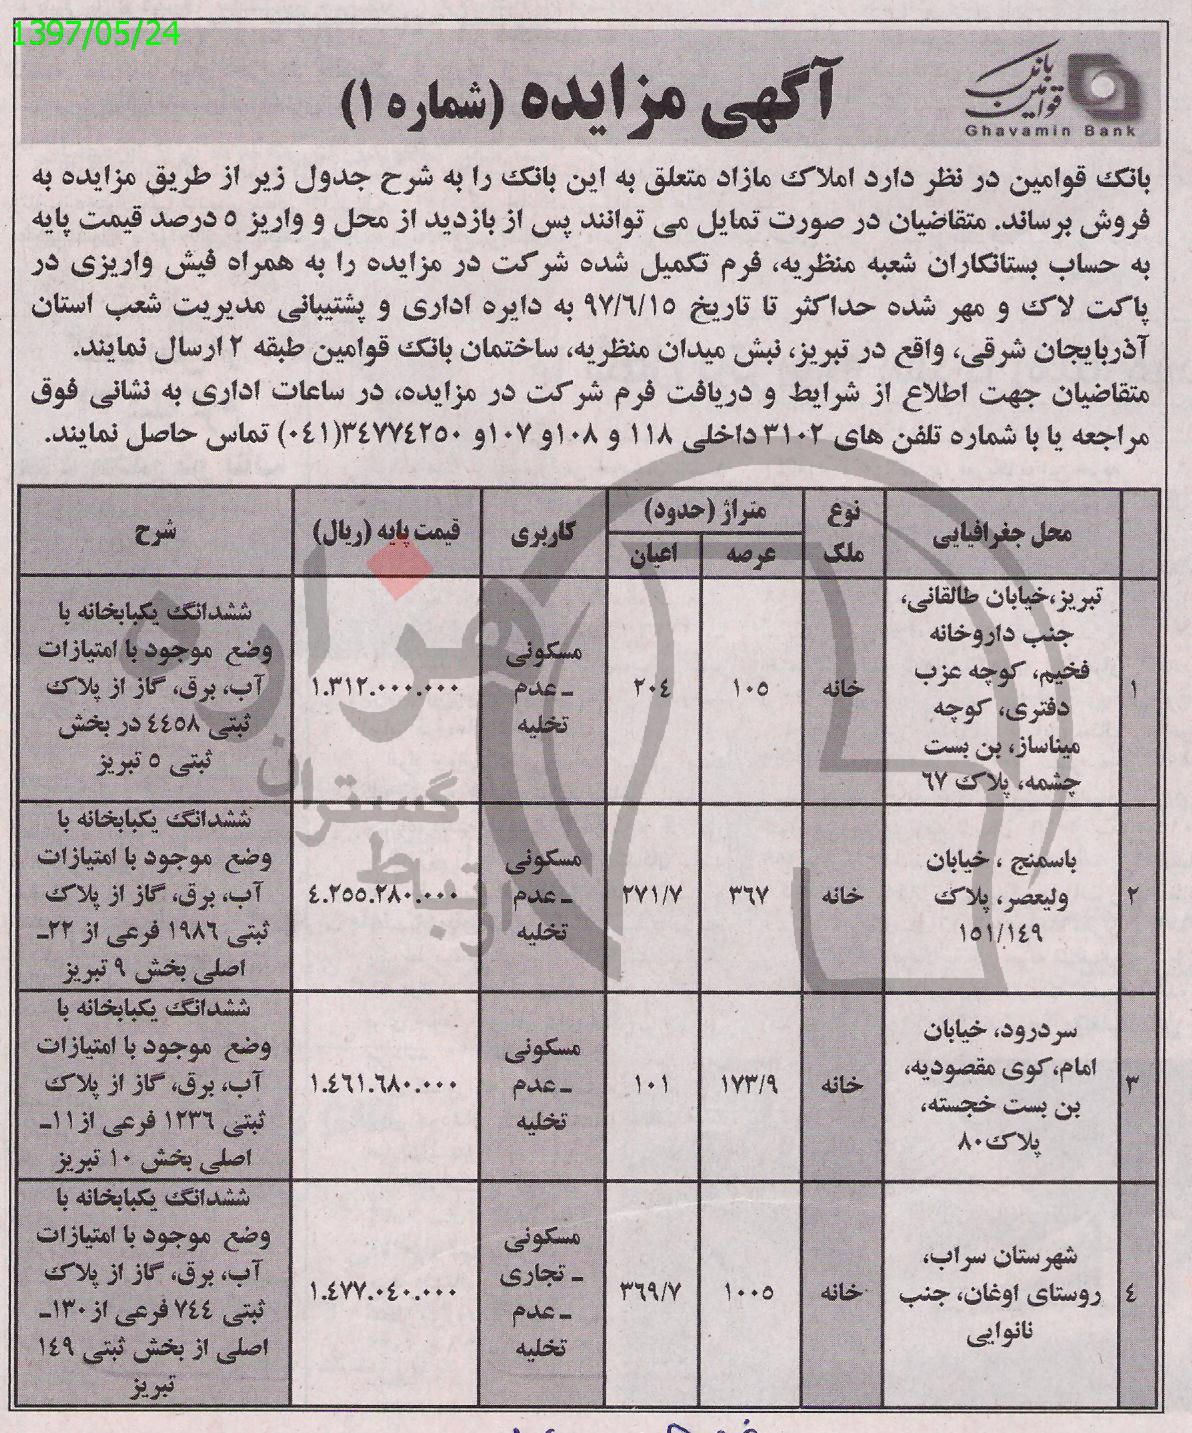 1397/05/24
بانک قوامین
Ghavamin Bank
آگهی مزایده (شماره ۱)
بانک قوامین در نظر دارد املاک مازاد متعلق به این بانک را به شرح جدول زیر از طریق مزایده به
فروش برساند. متقاضیان در صورت تمایل می توانند پس از بازدید از محل و واریز ۵ درصد قیمت پایه
به حساب بستانکاران شعبه منظریه، فرم تکمیل شده شرکت در مزایده را به همراه فیش واریزی در
پاکت لاک و مهر شده حداکثر تا تاریخ ۹۷/۶/۱۵ به دایره اداری و پشتیبانی مدیریت شعب استان
آذربایجان شرقی، واقع در تبریز، نبش میدان منظریه، ساختمان بانک قوامین طبقه ۲ ارسال نمایند.
متقاضیان جهت اطلاع از شرایط و دریافت فرم شرکت در مزایده، در ساعات اداری به نشانی فوق
مراجعه یا با شماره تلفن های ۳۱۰۲ داخلی ۱۱۸ و ۱۰۸ و ۱۰۷ و ۳۴۷۷۴۲۵۰(۰۴۱) تماس حاصل نمایند.
محل جغرافیایی
نوع
ملک
متراژ (حدود)
عرصه
اعیان
کاربری
قیمت پایه (ریال)
شرح
۱
تبریز،خیابان طالقانی،
جنب داروخانه
فخیم، کوچه عزب
دفتری، کوچه
میناساز، بن بست
چشمه، پلاک ۶۷
خانه
۱۰۵
۲۰۴
مسکونی
ـ عدم
تخلیه
۱.۳۱۲.۰۰۰.۰۰۰
ششدانگ یکبابخانه با
وضع موجود با امتیازات
آب، برق، گاز از پلاک
ثبتی ۴۴۵۸ در بخش
ثبتی ۵ تبریز
۲
باسمنج ، خیابان
ولیعصر، پلاک
۱۵۱/۱۴۹
خانه
۳۶۷
۲۷۱/۷
مسکونی
ـ عدم
تخلیه
۴.۲۵۵.۲۸۰.۰۰۰
ششدانگ یکبابخانه با
وضع موجود با امتیازات
آب، برق، گاز از پلاک
ثبتی ۱۹۸۶ فرعی از ۲۲ـ
اصلی بخش ۹ تبریز
۳
سردرود، خیابان
امام،کوی مقصودیه،
بن بست خجسته،
پلاک۸۰
خانه
۱۷۳/۹
۱۰۱
مسکونی
ـ عدم
تخلیه
۱.۴۶۱.۶۸۰.۰۰۰
ششدانگ یکبابخانه با
وضع موجود با امتیازات
آب، برق، گاز از پلاک
ثبتی ۱۲۳۶ فرعی از۱۱ـ
اصلی بخش ۱۰ تبریز
۴
شهرستان سراب،
روستای اوغان، جنب
نانوایی
خانه
۱۰۰۵
۳۶۹/۷
مسکونی
ـ تجاری
ـ عدم
تخلیه
۱.۴۷۷.۰۴۰.۰۰۰
ششدانگ یکبابخانه با
وضع موجود با امتیازات
آب، برق، گاز از پلاک
ثبتی ۷۴۴ فرعی از ۱۳۰ـ
اصلی از بخش ثبتی ۱۴۹
تبریز
هزاره
گستران
ارتباط